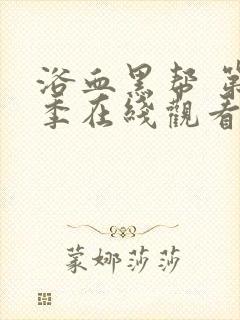 浴血黑帮 第
季在线觀看
蒙娜莎莎